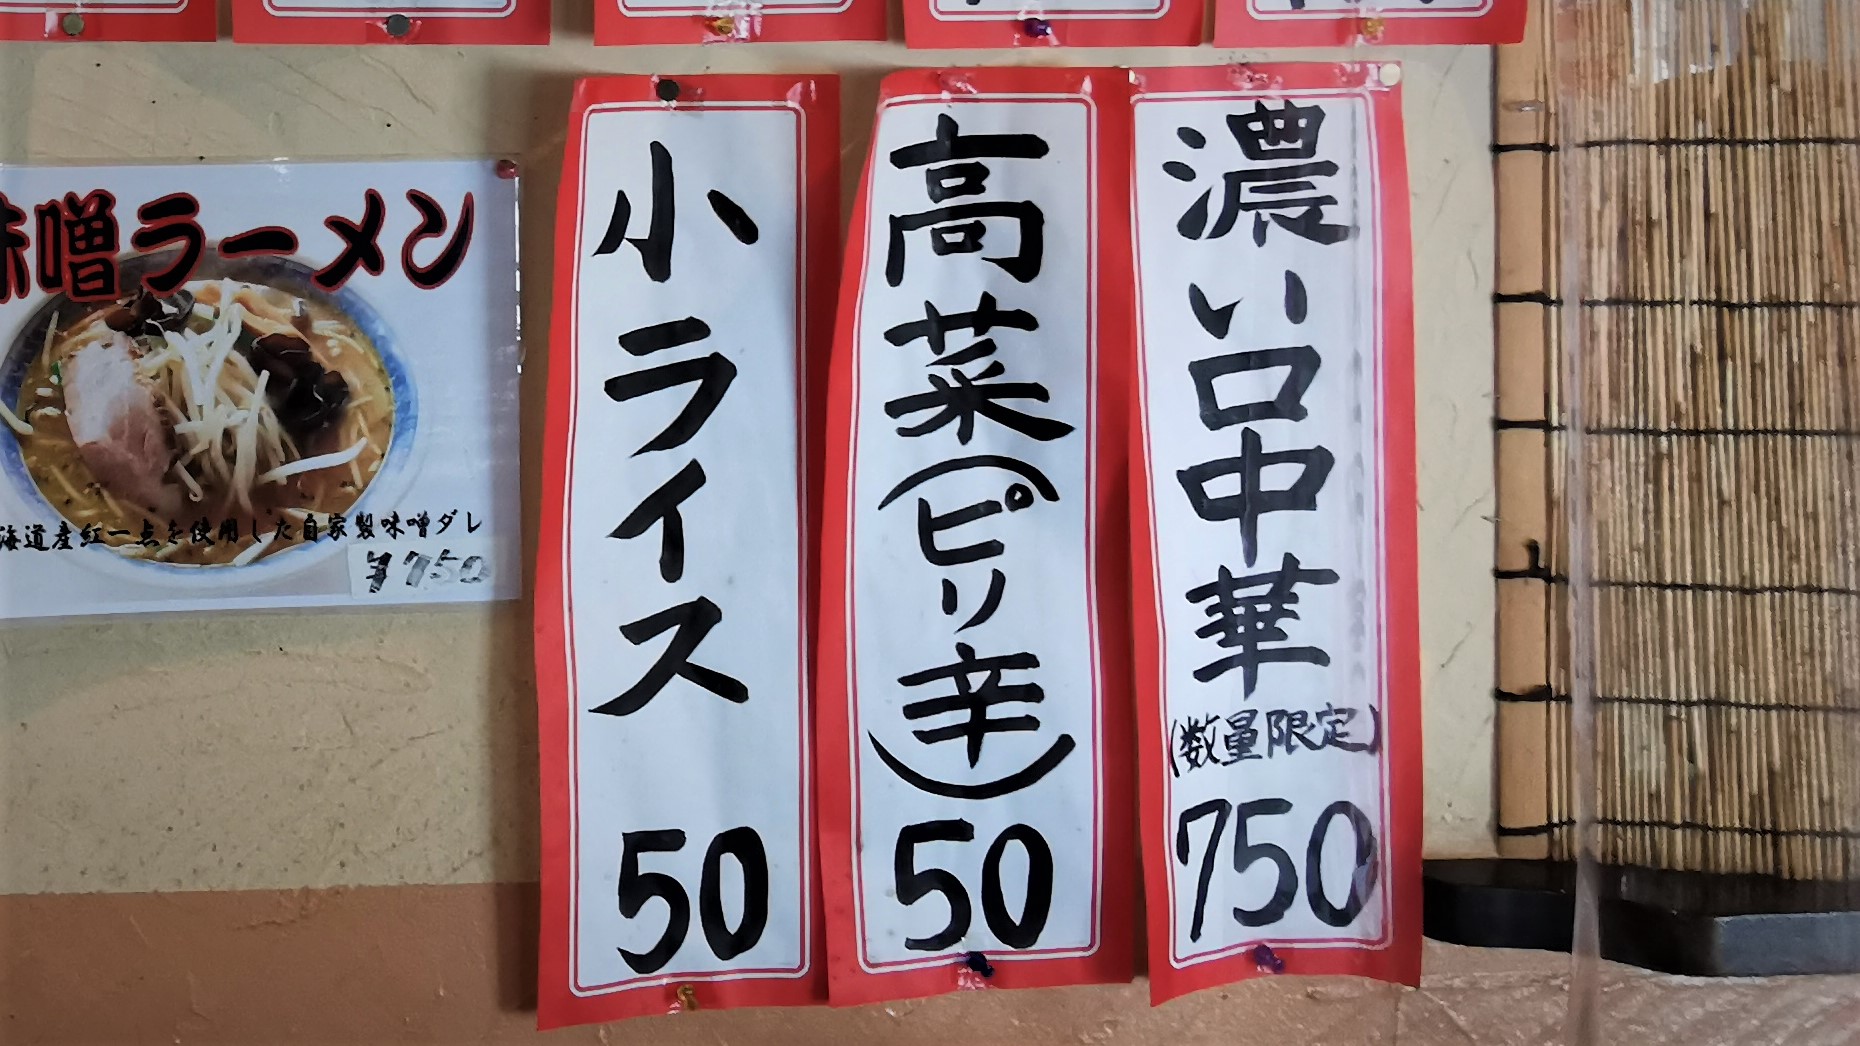 味噌ラーメン
海道産紅一点を使用した自家製味噌ダレ
¥750
小ライス
50
高菜(ピリ辛)
50
濃い口中華
(数量限定)
750